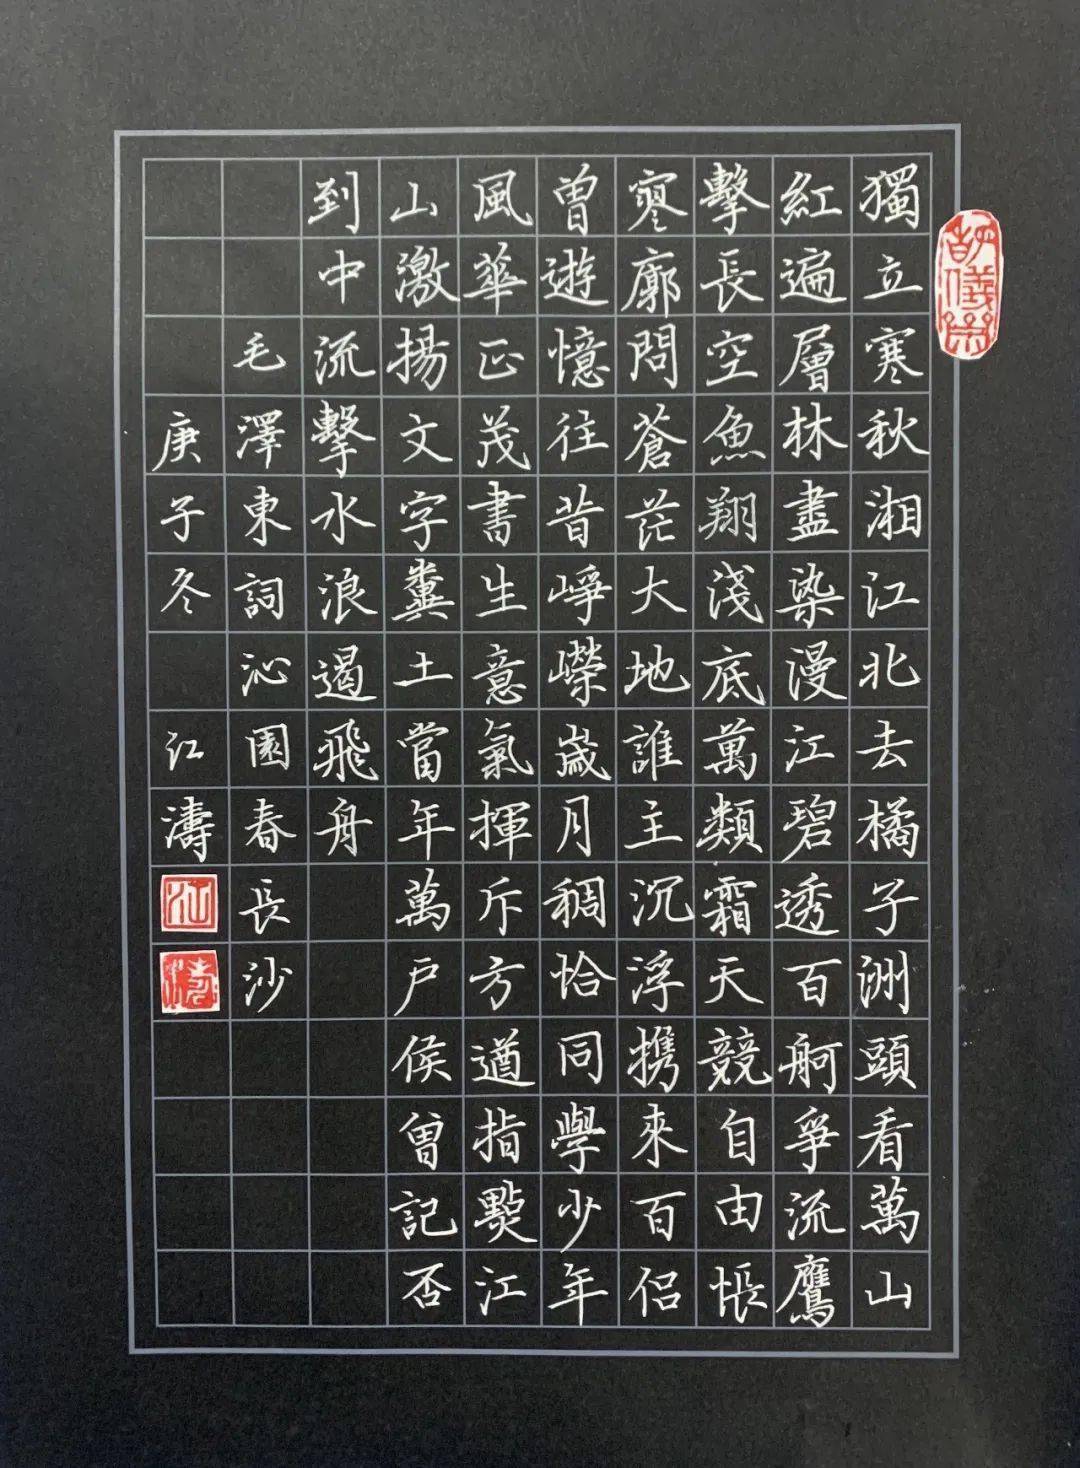 獨立寒秋湘江北去橘子洲頭看萬山
紅遍層林盡染漫江碧透百舸爭流鷹
擊長空魚翔淺底萬類霜天競自由悵
寥廓問蒼茫大地誰主沉浮携來百侣
曾遊憶往昔崢嶸歲月稠恰同學少年
風華正茂書生意氣揮斥方遒指點江
山激揚文字糞土當年萬户侯曾記否
到中流擊水浪遏飛舟
毛澤東詞沁園春長沙
庚子冬 江濤
江
濤